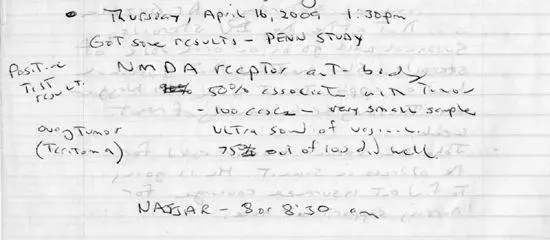 • Thursday, April 16, 2009 1:30pm
Got some results - PENN STUDY
Positive Test result. NMDA receptor anti-body
50% associate with Tumor
- 100 cases - very small sample
ovary Tumor Ultra sound of
(Teratoma) 75% out of 100 did well.
NAJJAR - 8 or 8:30 am